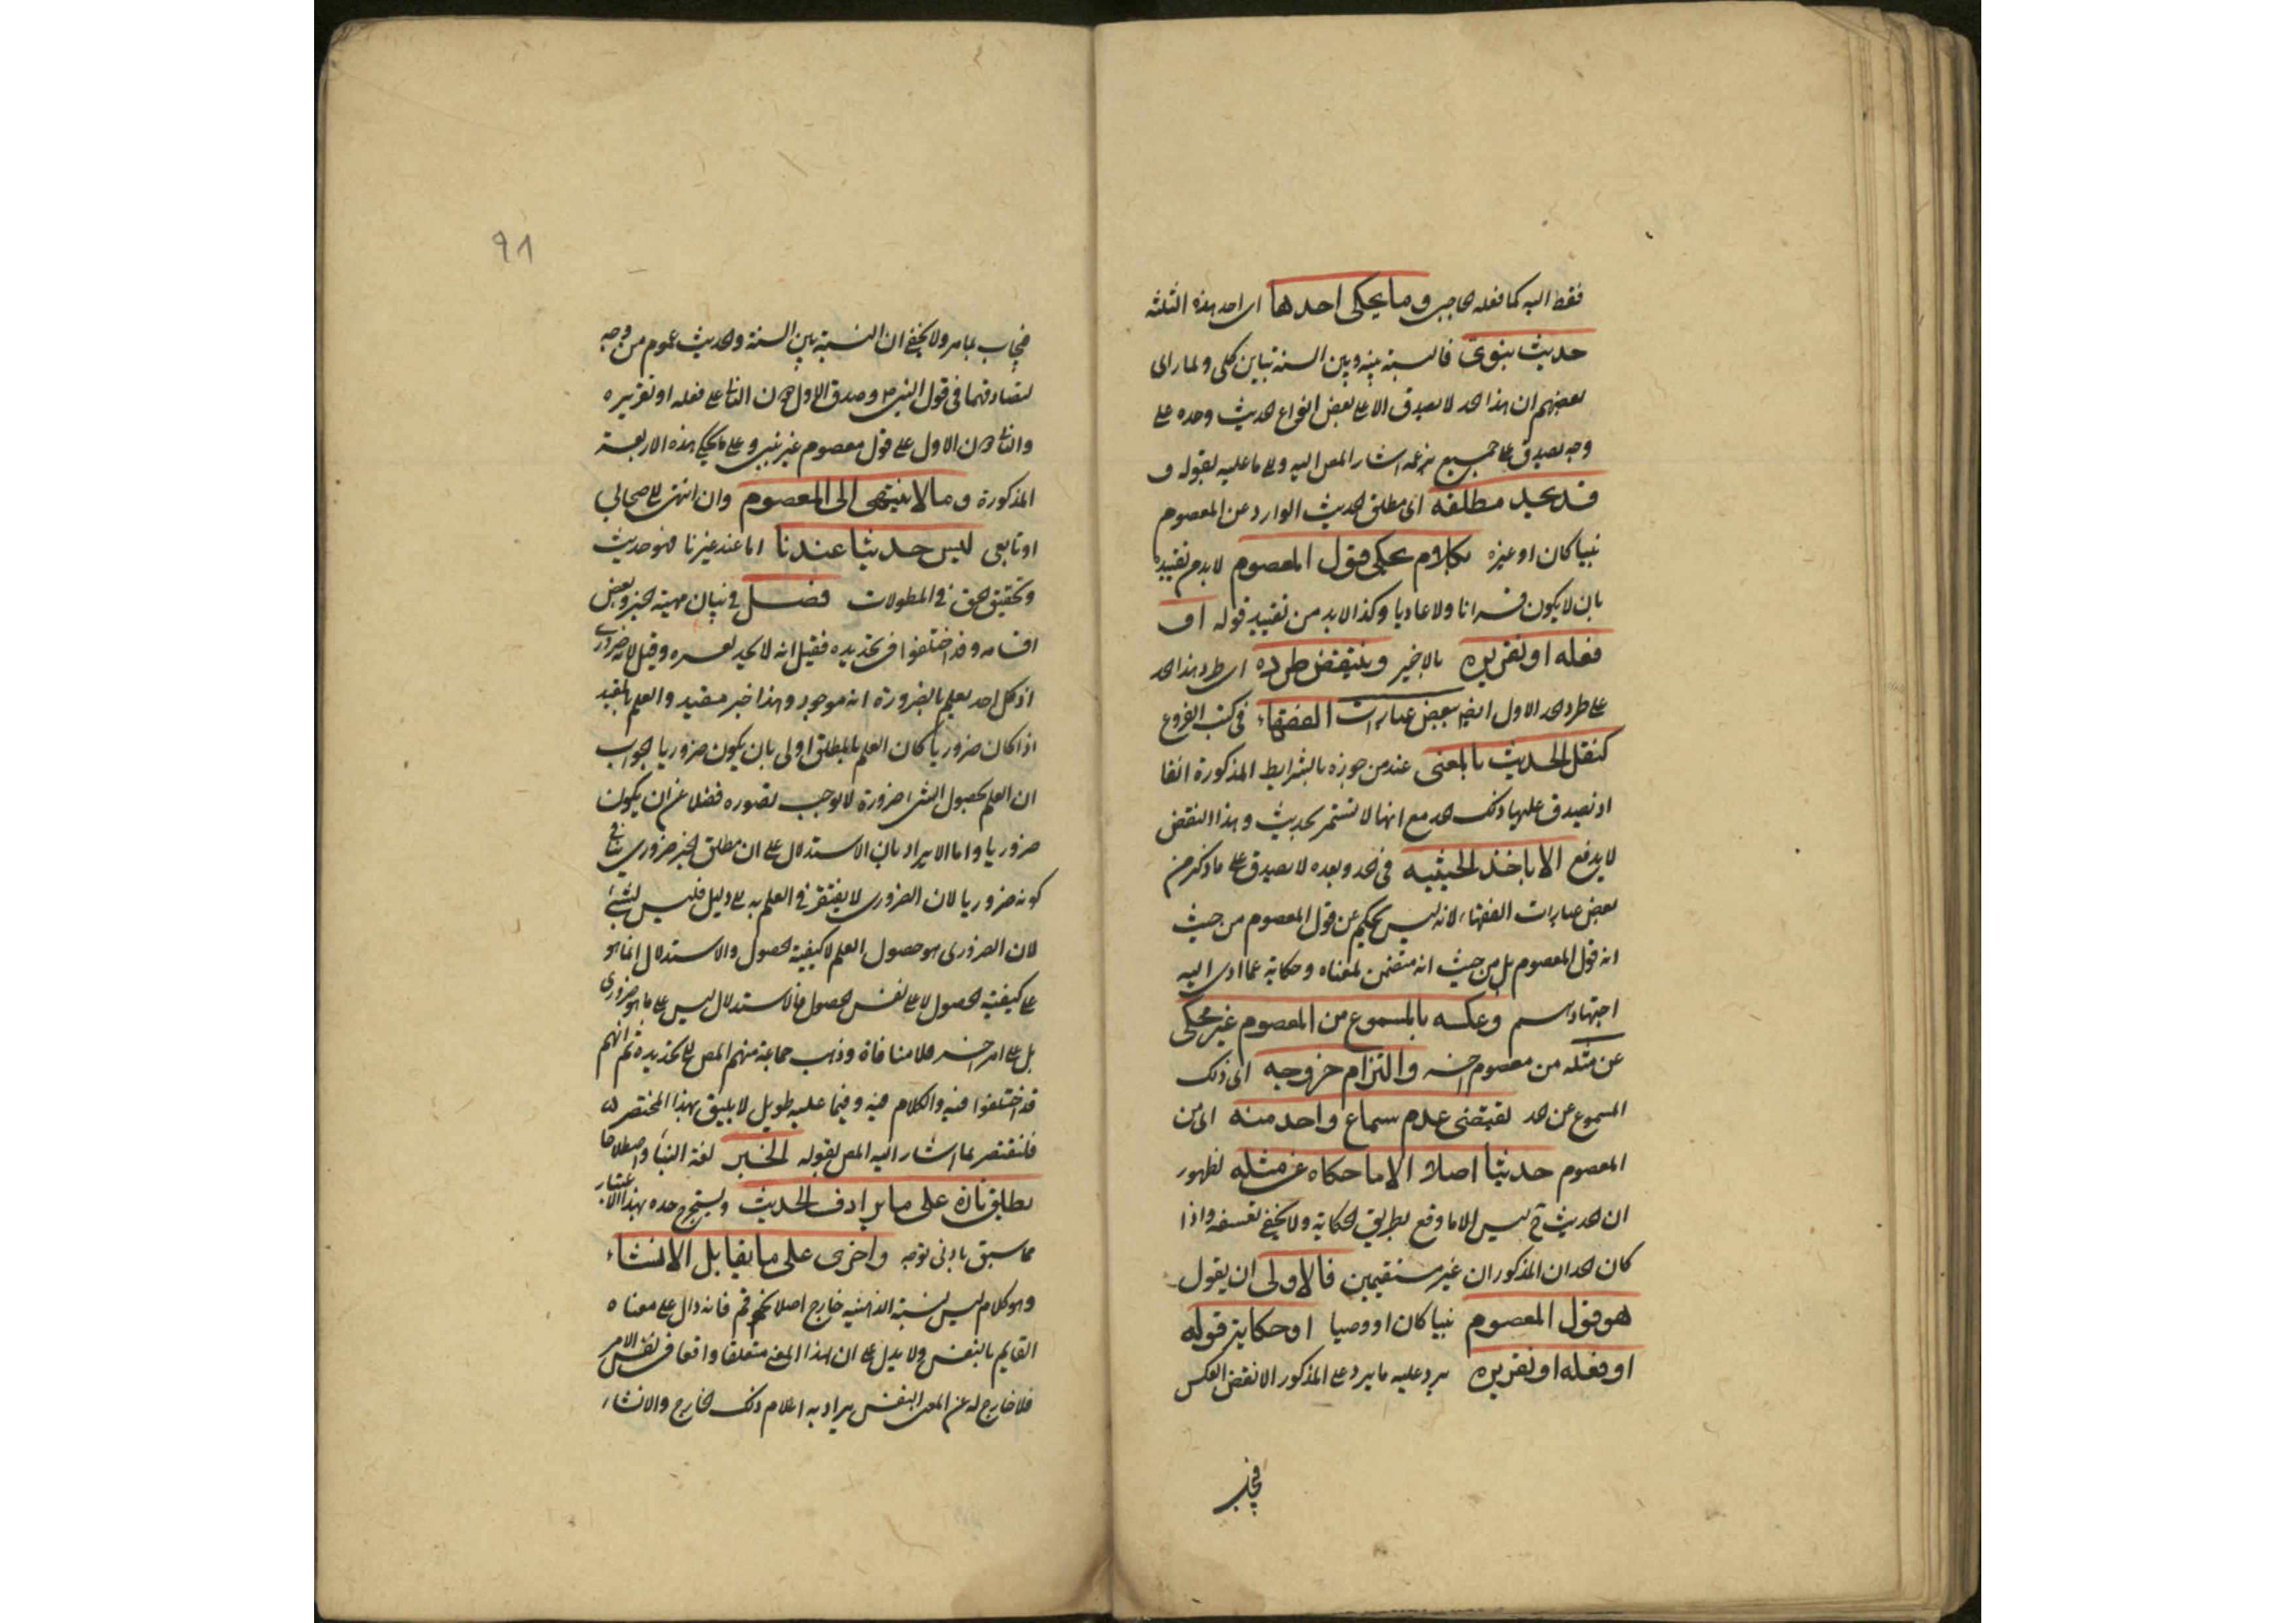 فقط اليه كما فعله الحاجبى وما يحكى احدها اى احد هذه الثلثة
حديث نبوى فالنسبة بينه وبين السنة تباين كلى ولما راى
بعضهم ان هذا الحد لا يصدق الا على بعض انواع الحديث وحده على
وجه يصدق على جميع اشار المص اليه والى ما عليه بقوله و
قد يحد مطلقه اى مطلق الحديث الوارد عن المعصوم
نبيا كان او غيره بكلام يحكى قول المعصوم لا بد من تقييده
بان لا يكون قرانا ولا عاديا وكذا لا بد من تقييد قوله او
فعله او تقريره بالاخير وينتقض طرده اى طرد هذا الحد
على طرد الحد الاول ايضا ببعض عبارات الفقهاء فى كتب الفروع
كنقل الحديث بالمعنى عند من جوزه بالشرايط المذكورة انفا
اذ يصدق عليها ذلك الحد مع انها لا تسمى بحديث وهذا النقض
لا يدفع الا باخذ الحيثيه فى الحد وبعده لا يصدق على ما ذكر من
بعض عبارات الفقهاء لانه ليس يحكى عن قول المعصوم من حيث
انه قول المعصوم بل من حيث انه متضمن لمعناه وحكاية عما ادى اليه
اجتهادهم وعكسه بالمسموع من المعصوم غير محكى
عن مثله من معصوم اخر والتزام خروجه اى ذلك
المسموع عن الحد يقتضى عدم سماع واحد منه اى من
المعصوم حديثا اصلا الا ما حكاه عن مثله لظهور
ان الحديث ح ليس الا ما وقع بطريق الحكاية ولا يخفى تعسفه واذا
كان الحدان المذكوران غير مستقيمين فالاولى ان يقول
هو قول المعصوم نبيا كان او وصيا او حكاية قوله
او فعله او تقريره يرد عليه ما يرد على المذكور الا نقض العكس
فيجاب
٩٨
فيجاب بما مر ولا يخفى ان النسبة بين السنة والحديث عموم من وجه
لتصادقهما فى قول النبى ص وصدق الاول دون الثانى على فعله او تقريره
والثانى دون الاول على قول معصوم غير نبى وعلى ما يحكى هذه الاربعة
المذكورة وما لا ينتهى الى المعصوم وان انتهى الى صحابى
او تابعى ليس حديثا عندنا اما عند غيرنا فهو حديث
وتحقيق الحق فى المطولات فصل فى بيان مهية الخبر وبعض
اقسامه وقد اختلفوا فى تحديده فقيل انه لا يحد لعسره وقيل لانه ضرورى
اذ كل احد يعلم بالضرورة انه موجود وهذا خبر مقيد والعلم بالمقيد
اذا كان ضروريا كان العلم بالمطلق اولى بان يكون ضروريا الجواب
ان العلم بحصول الشئ ضرورة لا يوجب تصوره فضلا عن ان يكون
ضروريا واما الايراد بان الاستدلال على ان مطلق الخبر ضرورى ينافى
كونه ضروريا لان الضرورى لا يفتقر فى العلم به الى دليل فليس بشئ
لان الضرورى هو حصول العلم لا كيفية الحصول والاستدلال انما هو
على كيفية الحصول لا على نفس الحصول فالاستدلال ليس على ما هو ضرورى
بل على امر اخر فلا منافاة وذهب جماعة منهم المص الى تحديده ثم انهم
قد اختلفوا فيه والكلام فيه وفيما عليه طويل لا يليق بهذا المختصر
فلنقتصر بما اشار اليه المص بقوله الخبر لغة النبأ واصطلاحا
يطلق تارة على ما يرادف الحديث ويستخرج حده بهذا الاعتبار
مما سبق بادنى توجه واخرى على ما يقابل الانشاء
وهو كلام ليس لنسبته الذهنية خارج اصلا نحو قم فانه دال على معناه
القايم بالنفس ولا يدل على ان لهذا المعنى متعلقا واقعا فى نفس الامر
فلا خارج له عن المعنى النفسى يراد به اعلام ذلك الخارج والانشاء